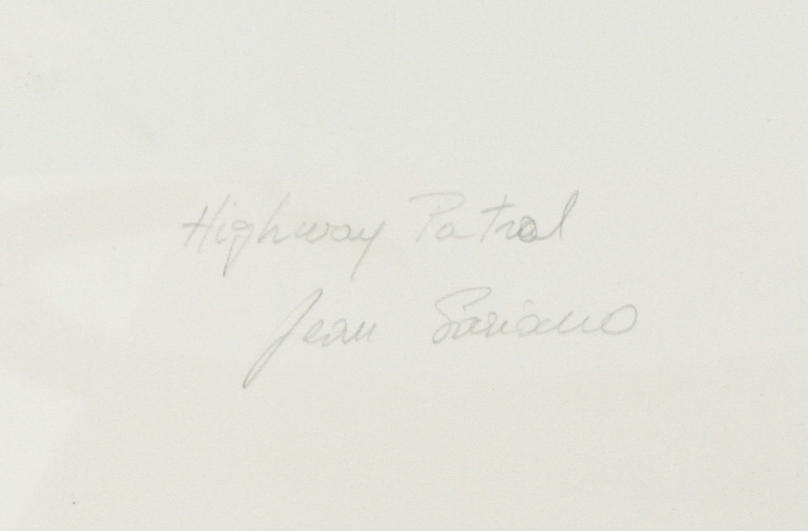 Highway Patrol
Jean Sariano